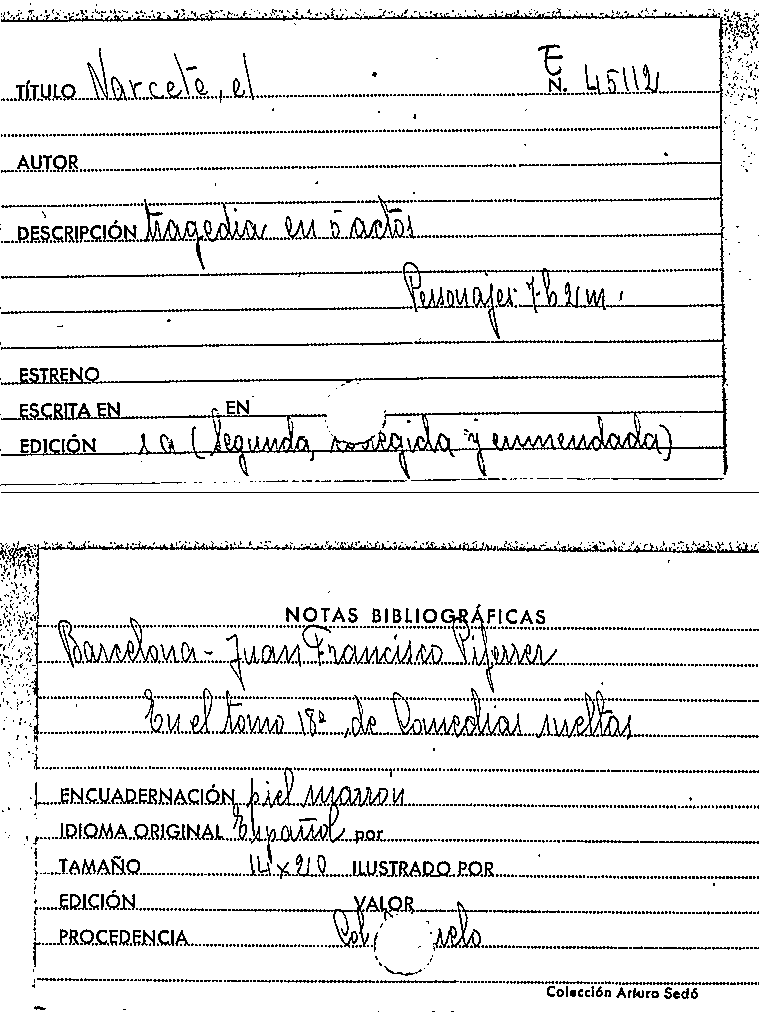 E
TÍTULO Narcete, el N. 45112
AUTOR
DESCRIPCIÓN tragedia en 5 actos
Personajes 7 h 2 m.
ESTRENO
ESCRITA EN EN
EDICIÓN (Segunda, corregida y enmendada)
NOTAS BIBLIOGRÁFICAS
Barcelona - Juan Francisco Piferrer
En el tomo 18º, de Comedias sueltas
ENCUADERNACIÓN piel marrón
IDIOMA ORIGINAL Español por
TAMAÑO 14 x 20 ILUSTRADO POR
EDICIÓN VALOR
PROCEDENCIA
Colección Arturo Sedó